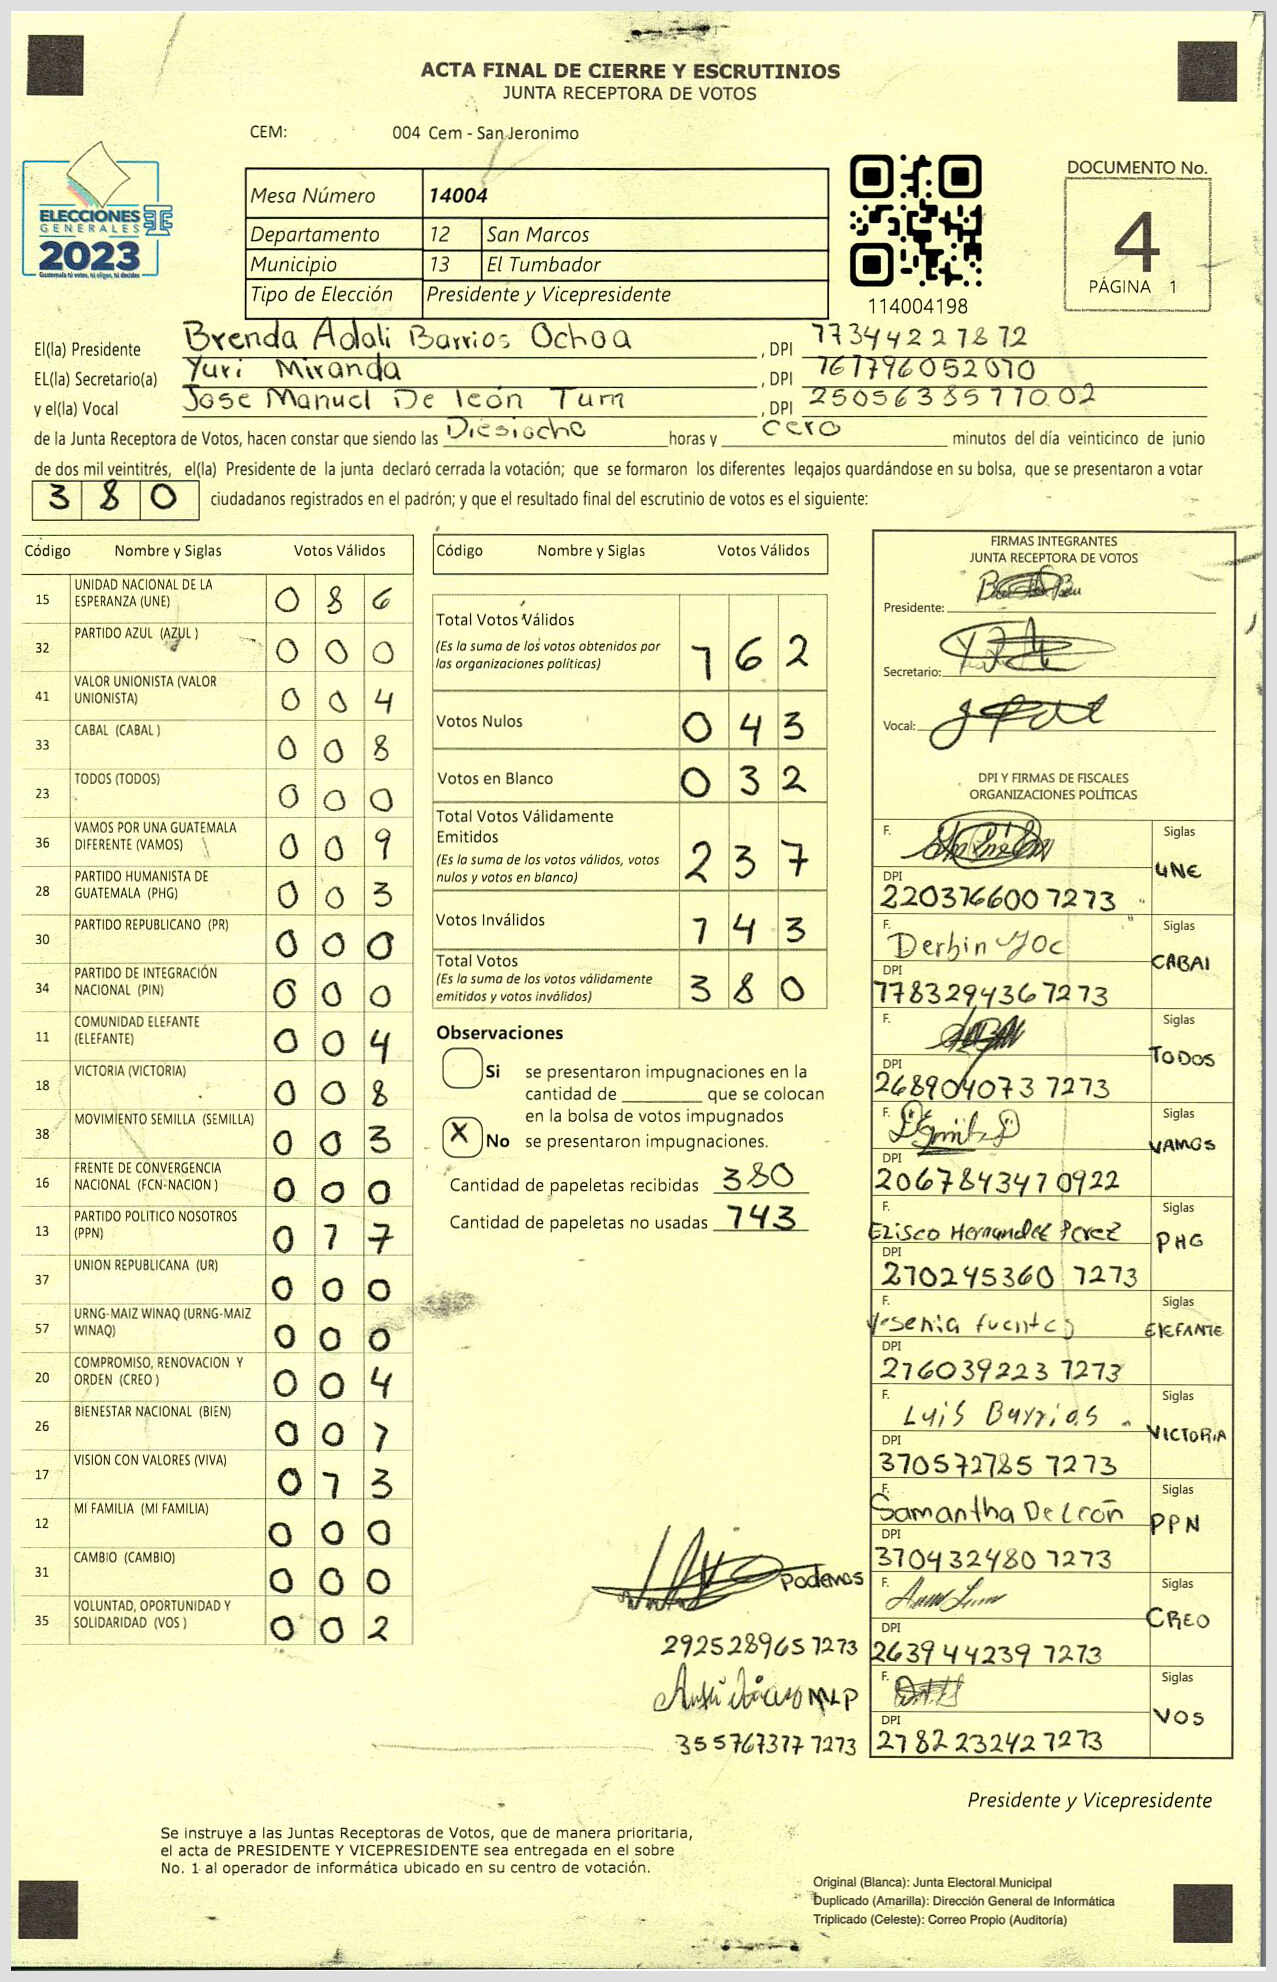 ACTA FINAL DE CIERRE Y ESCRUTINIOS
JUNTA RECEPTORA DE VOTOS
CEM: 004 Cem - San Jeronimo
ELECCIONES
GENERALES
2023
Guatemala tú votas, tú eliges, tú decides
Mesa Número 14004
Departamento 12 San Marcos
Municipio 13 El Tumbador
Tipo de Elección Presidente y Vicepresidente
114004198
DOCUMENTO No.
4
PÁGINA 1
El(la) Presidente Brenda Adali Barrios Ochoa, DPI 17344227872
EL(la) Secretario(a) Yuri Miranda, DPI 161796052010
y el(la) Vocal Jose Manuel De león Tum, DPI 2505638577002
de la Junta Receptora de Votos, hacen constar que siendo las Diesiocho horas y cero minutos del día veinticinco de junio
de dos mil veintitrés, el(la) Presidente de la junta declaró cerrada la votación; que se formaron los diferentes legajos guardándose en su bolsa, que se presentaron a votar
380 ciudadanos registrados en el padrón; y que el resultado final del escrutinio de votos es el siguiente:
Código Nombre y Siglas Votos Válidos
15 UNIDAD NACIONAL DE LA ESPERANZA (UNE) 0 8 6
32 PARTIDO AZUL (AZUL ) 0 0 0
41 VALOR UNIONISTA (VALOR UNIONISTA) 0 0 4
33 CABAL (CABAL ) 0 0 8
23 TODOS (TODOS) 0 0 0
36 VAMOS POR UNA GUATEMALA DIFERENTE (VAMOS) 0 0 9
28 PARTIDO HUMANISTA DE GUATEMALA (PHG) 0 0 3
30 PARTIDO REPUBLICANO (PR) 0 0 0
34 PARTIDO DE INTEGRACIÓN NACIONAL (PIN) 0 0 0
11 COMUNIDAD ELEFANTE (ELEFANTE) 0 0 4
18 VICTORIA (VICTORIA) 0 0 8
38 MOVIMIENTO SEMILLA (SEMILLA) 0 0 3
16 FRENTE DE CONVERGENCIA NACIONAL (FCN-NACION ) 0 0 0
13 PARTIDO POLITICO NOSOTROS (PPN) 0 1 7
37 UNION REPUBLICANA (UR) 0 0 0
57 URNG-MAIZ WINAQ (URNG-MAIZ WINAQ) 0 0 0
20 COMPROMISO, RENOVACION Y ORDEN (CREO ) 0 0 4
26 BIENESTAR NACIONAL (BIEN) 0 0 1
17 VISION CON VALORES (VIVA) 0 1 3
12 MI FAMILIA (MI FAMILIA) 0 0 0
31 CAMBIO (CAMBIO) 0 0 0
35 VOLUNTAD, OPORTUNIDAD Y SOLIDARIDAD (VOS ) 0 0 2
Código Nombre y Siglas Votos Válidos
Total Votos Válidos
(Es la suma de los votos obtenidos por
las organizaciones políticas) 1 6 2
Votos Nulos 0 4 3
Votos en Blanco 0 3 2
Total Votos Válidamente
Emitidos
(Es la suma de los votos válidos, votos
nulos y votos en blanco) 2 3 7
Votos Inválidos 1 4 3
Total Votos
(Es la suma de los votos válidamente
emitidos y votos inválidos) 3 8 0
Observaciones
Si se presentaron impugnaciones en la
cantidad de ________ que se colocan
en la bolsa de votos impugnados
X No se presentaron impugnaciones.
Cantidad de papeletas recibidas 380
Cantidad de papeletas no usadas 143
Podemos
2925289651273
MLP
3557673771273
FIRMAS INTEGRANTES
JUNTA RECEPTORA DE VOTOS
Presidente:
Secretario:
Vocal:
DPI Y FIRMAS DE FISCALES
ORGANIZACIONES POLÍTICAS
F. Siglas
UNE
DPI
2203766001273
F. Derbin Joc Siglas
CABAl
DPI
1783294361273
F. Siglas
TODOS
DPI
2689040731273
F. Siglas
VAMOS
DPI
2067843410922
F. Elisco Hernandez Perez Siglas
PHG
DPI
2702453601273
F. Yesenia fuentes Siglas
ElEFANTE
DPI
2760392231273
F. Luis Barrios Siglas
VICTORIA
DPI
3705727851273
F. Samantha De León Siglas
PPN
DPI
3704324801273
F. Siglas
CREO
DPI
2639442391273
F. Siglas
VOS
DPI
2782232421273
Presidente y Vicepresidente
Se instruye a las Juntas Receptoras de Votos, que de manera prioritaria,
el acta de PRESIDENTE Y VICEPRESIDENTE sea entregada en el sobre
No. 1 al operador de informática ubicado en su centro de votación.
Original (Blanca): Junta Electoral Municipal
Duplicado (Amarilla): Dirección General de Informática
Triplicado (Celeste): Correo Propio (Auditoría)